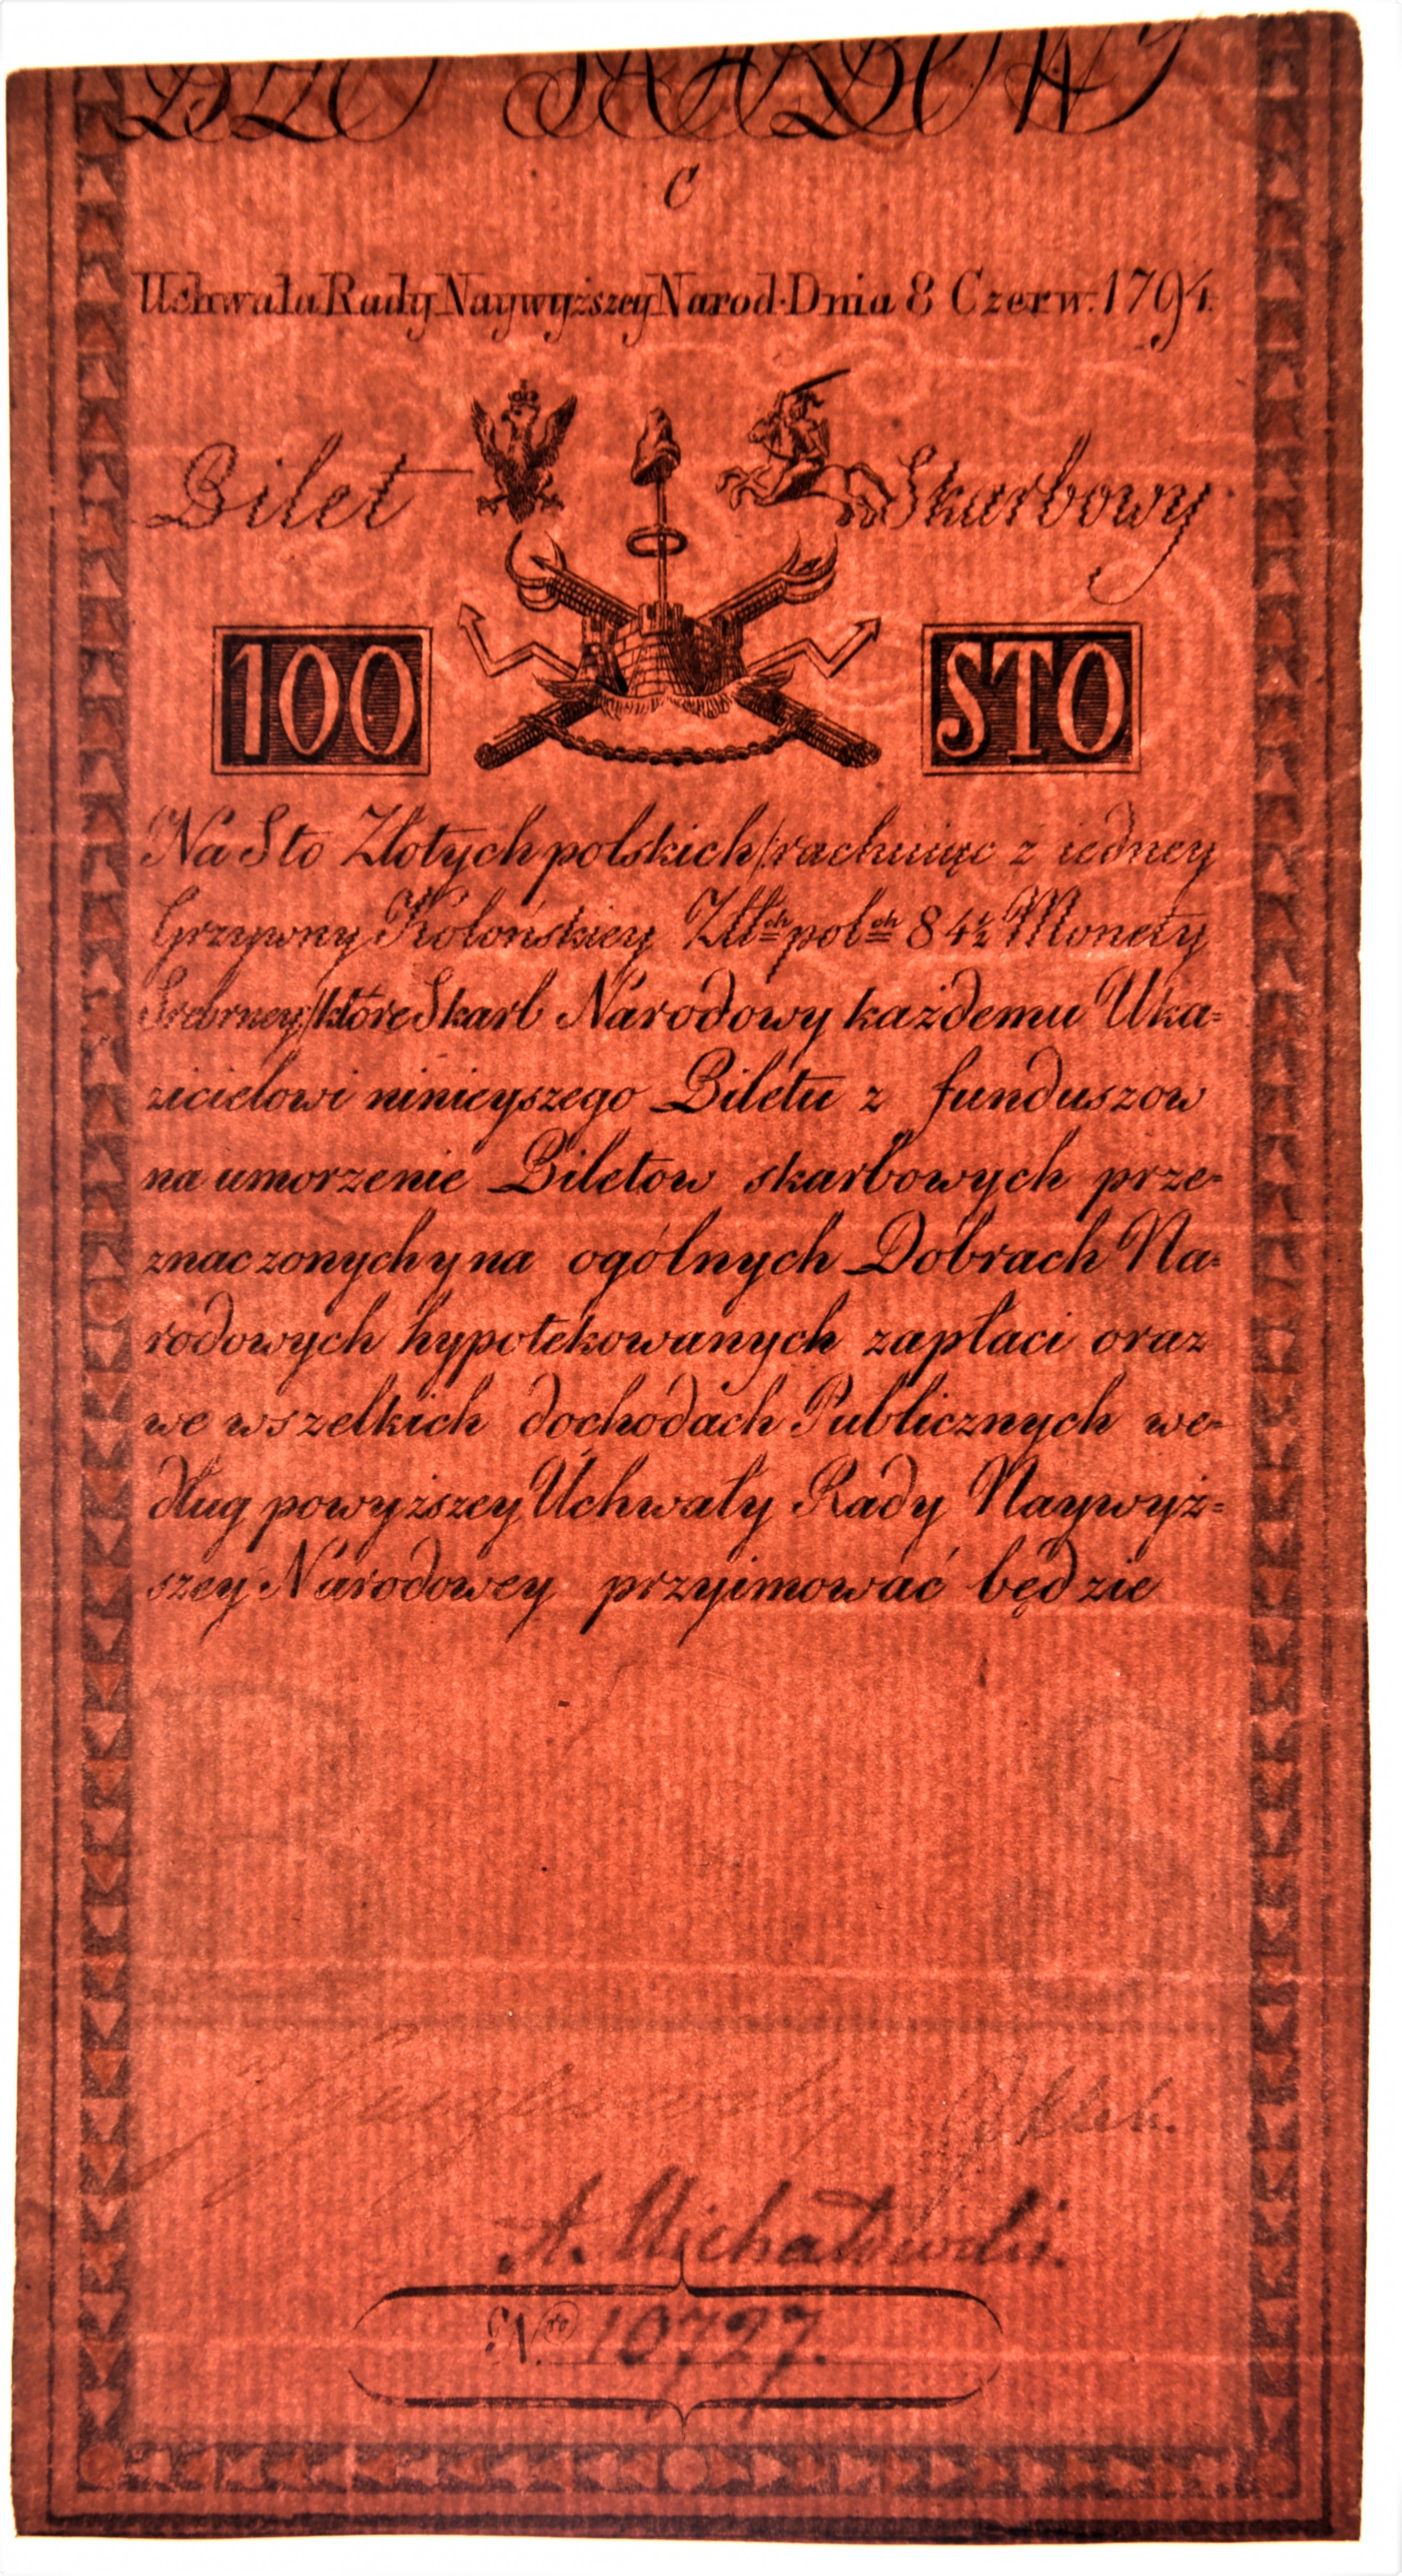 C
Uchwała Rady Naywyższey Narod. Dnia 8 Czerw. 1794.
Bilet Skarbowy.
100 STO
Na Sto Złotych polskich /:rachuiąc z iedney
Grzywny Kolońskiey Złł<sup>ch</sup> pol<sup>ch</sup> 84½ Monety
Srebrney:/ które Skarb Narodowy każdemu Uka=
zicielowi ninieyszego Biletu z funduszow
na umorzenie Biletow skarbowych prze=
znaczonych y na ogólnych Dobrach Na=
rodowych hypotekowanych zapłaci oraz
we wszelkich dochodach Publicznych we=
dług powyższey Uchwały Rady Naywyż=
szey Narodowey przyimować będzie
A. Michałowski.
N<sup>ro</sup>. 10727.